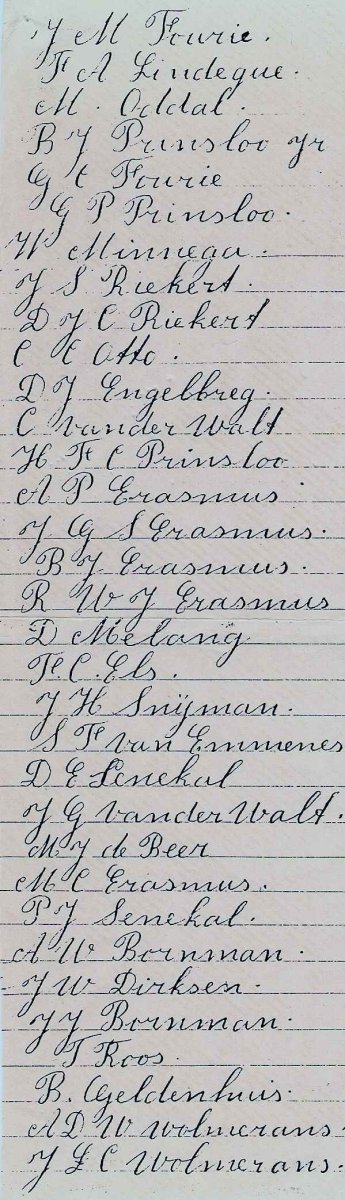 J M Fourie.
F A Lindeque.
M. Oddal.
B J Prinsloo Jr
G C Fourie
G P Prinsloo.
W Minnega.
J S Riekert.
D J C Riekert
C C Otto.
D J Engelbreg.
C van der Walt
H F C Prinsloo
A P Erasmus
J G S Erasmus.
B J Erasmus.
R W J Erasmus
D Melang.
F. C. Els.
J H Snijman.
S F van Emmenes
D E Senekal
J G van der Walt.
M J de Beer
M C Erasmus.
P J Senekal.
A W Bornman.
J W Dirksen.
J J Bornman.
T Roos.
B. Geldenhuis.
A D W Wolmerans.
J L C Wolmerans.